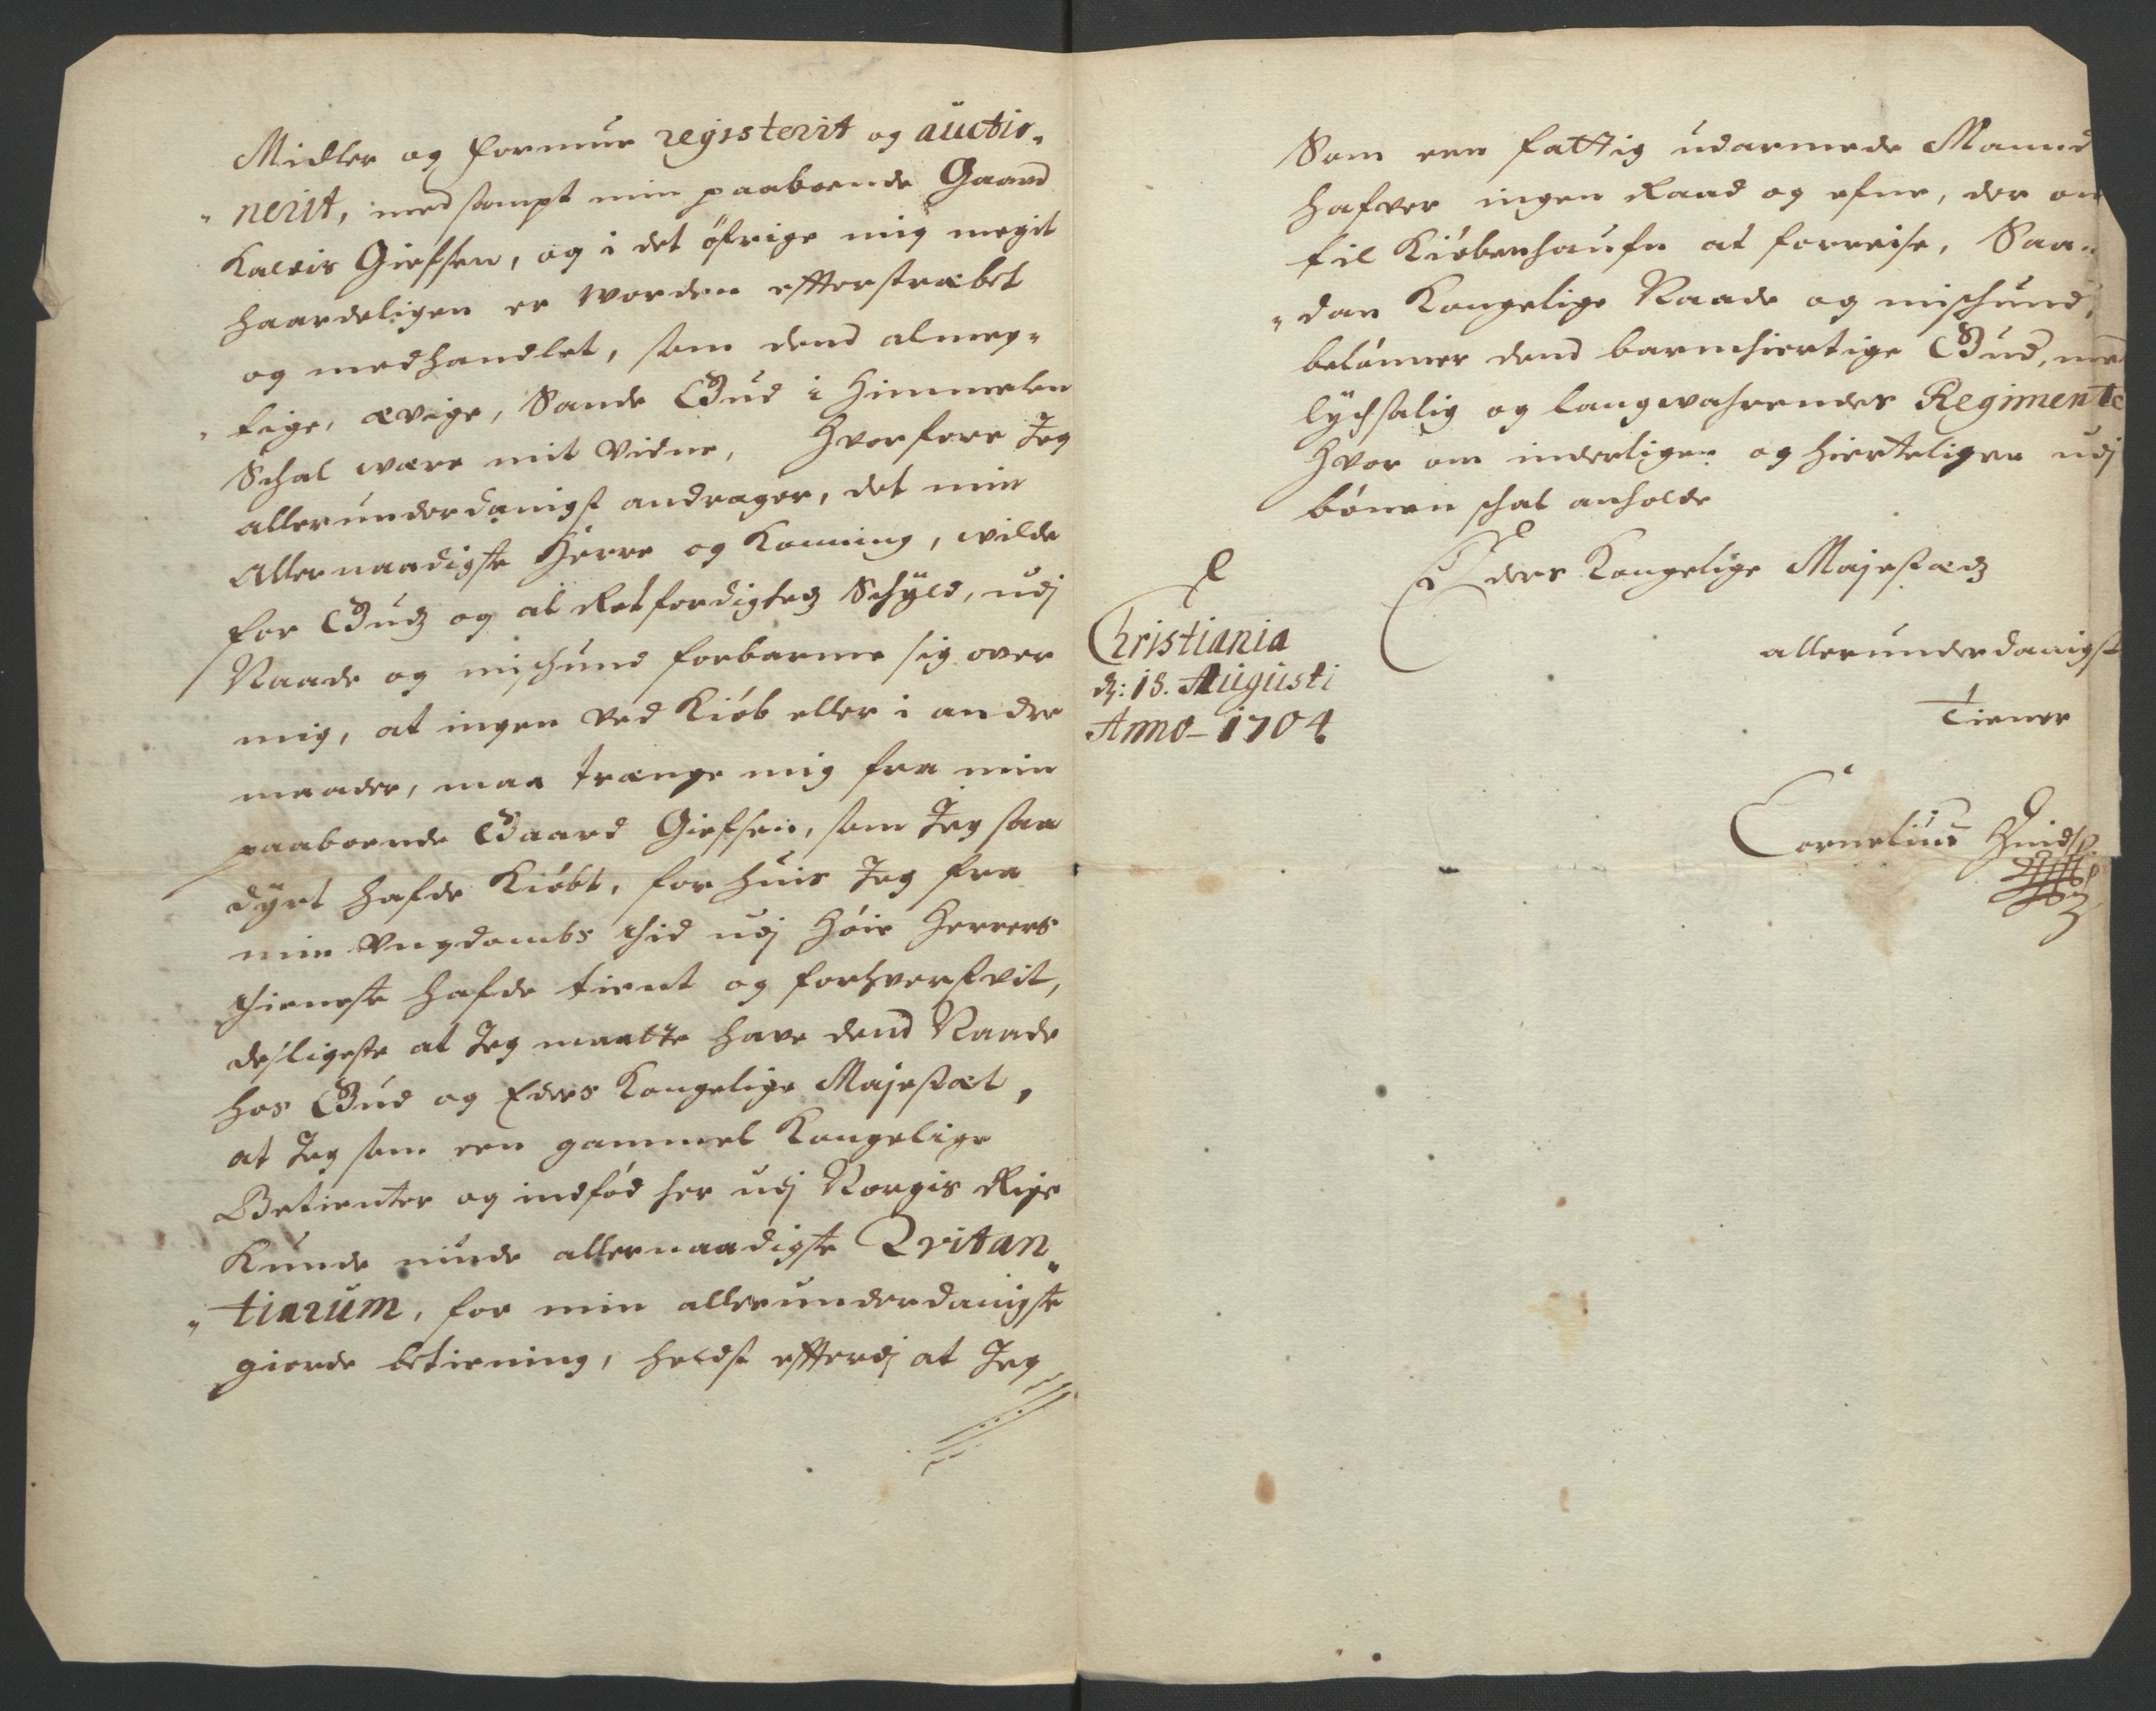 Midler og formue registerit og auctio„
„nerit, med sampt min paaboende Gaard
Kaldis Giefsen, og i det öfrige mig megit
haardeligen er worden efterstræbet
og medhandlet, som dend almeg„
„tige, ævige, Sande Gud i Himmelen
Schal være mit Vidne, Hvorfore Jeg
allerunderdanigst andrager, det min
Allernaadigste Herre og Konning, wilde
for Gudz og al Retferdighedz Schyld, udj
Naade og mischund forbarme sig over
mig, at ingen ved Kiöb eller i andre
maader, maa trænge mig fra min
paaboende Gaard Giefsen, som Jeg saa
dyrt hafde Kiöbt, for huis Jeg fra
min Vngdombs thid udj Höie Herrers
thieneste hafde tient og forhverfvit,
desligeste at Jeg maatte have dend Naade
hos Gud og Eders Kongelige Majestæt,
at Jeg som een gammel Kongelige
Betienter og indföd her udj Norgis Rige
Kunde niude allernaadigste Qvitan„
„tiarum, for min allerunderdanigste
giorde betiening, heldst efterdj at Jeg
Som een fattig udarmede Mannd
hafver ingen Raad og efne, der om
til Kiöbenhaufn at forreise, Saa„
„dan Kongelige Naade og mischund,
belönner dend barmhiertige Gud, med
lychsalig og langvahrendes Regimente
Hvor om inderligen og hierteligen udj
bönen schal anholde
Eders Kongelige Majestædz
allerunderdanigst
Tiener
Christiania
dz: 18. Augusti
Anno – 1704
Cornelius